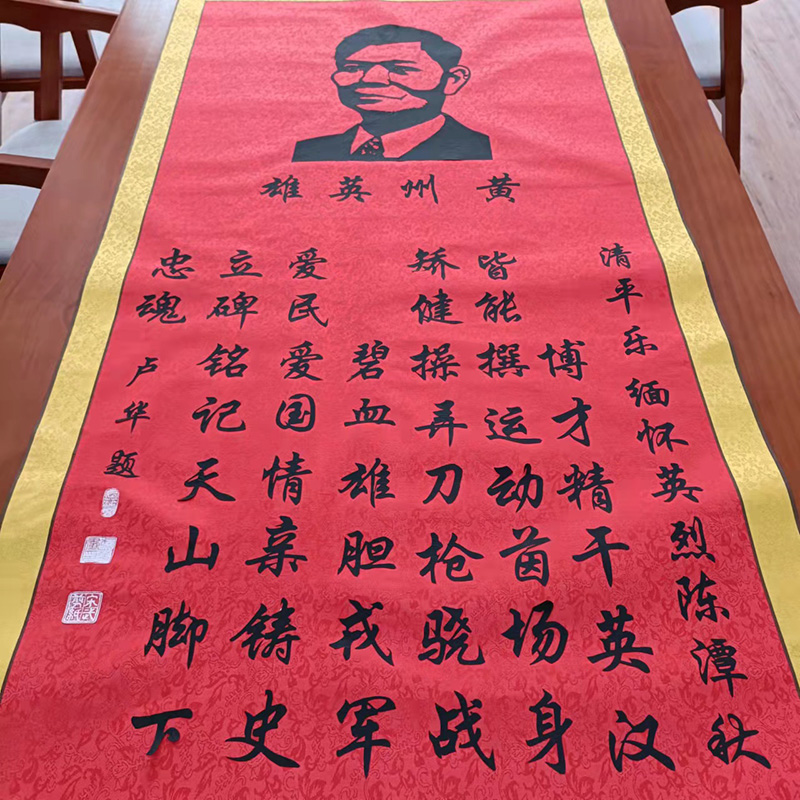 黄州英雄
清平乐缅怀英烈陈潭秋
博才精干英汉
皆能撰运动茵场身
矫健操弄刀枪骁战
碧血雄胆戎军
爱民爱国情亲铸史
立碑铭记天山脚下
忠魂
卢华题